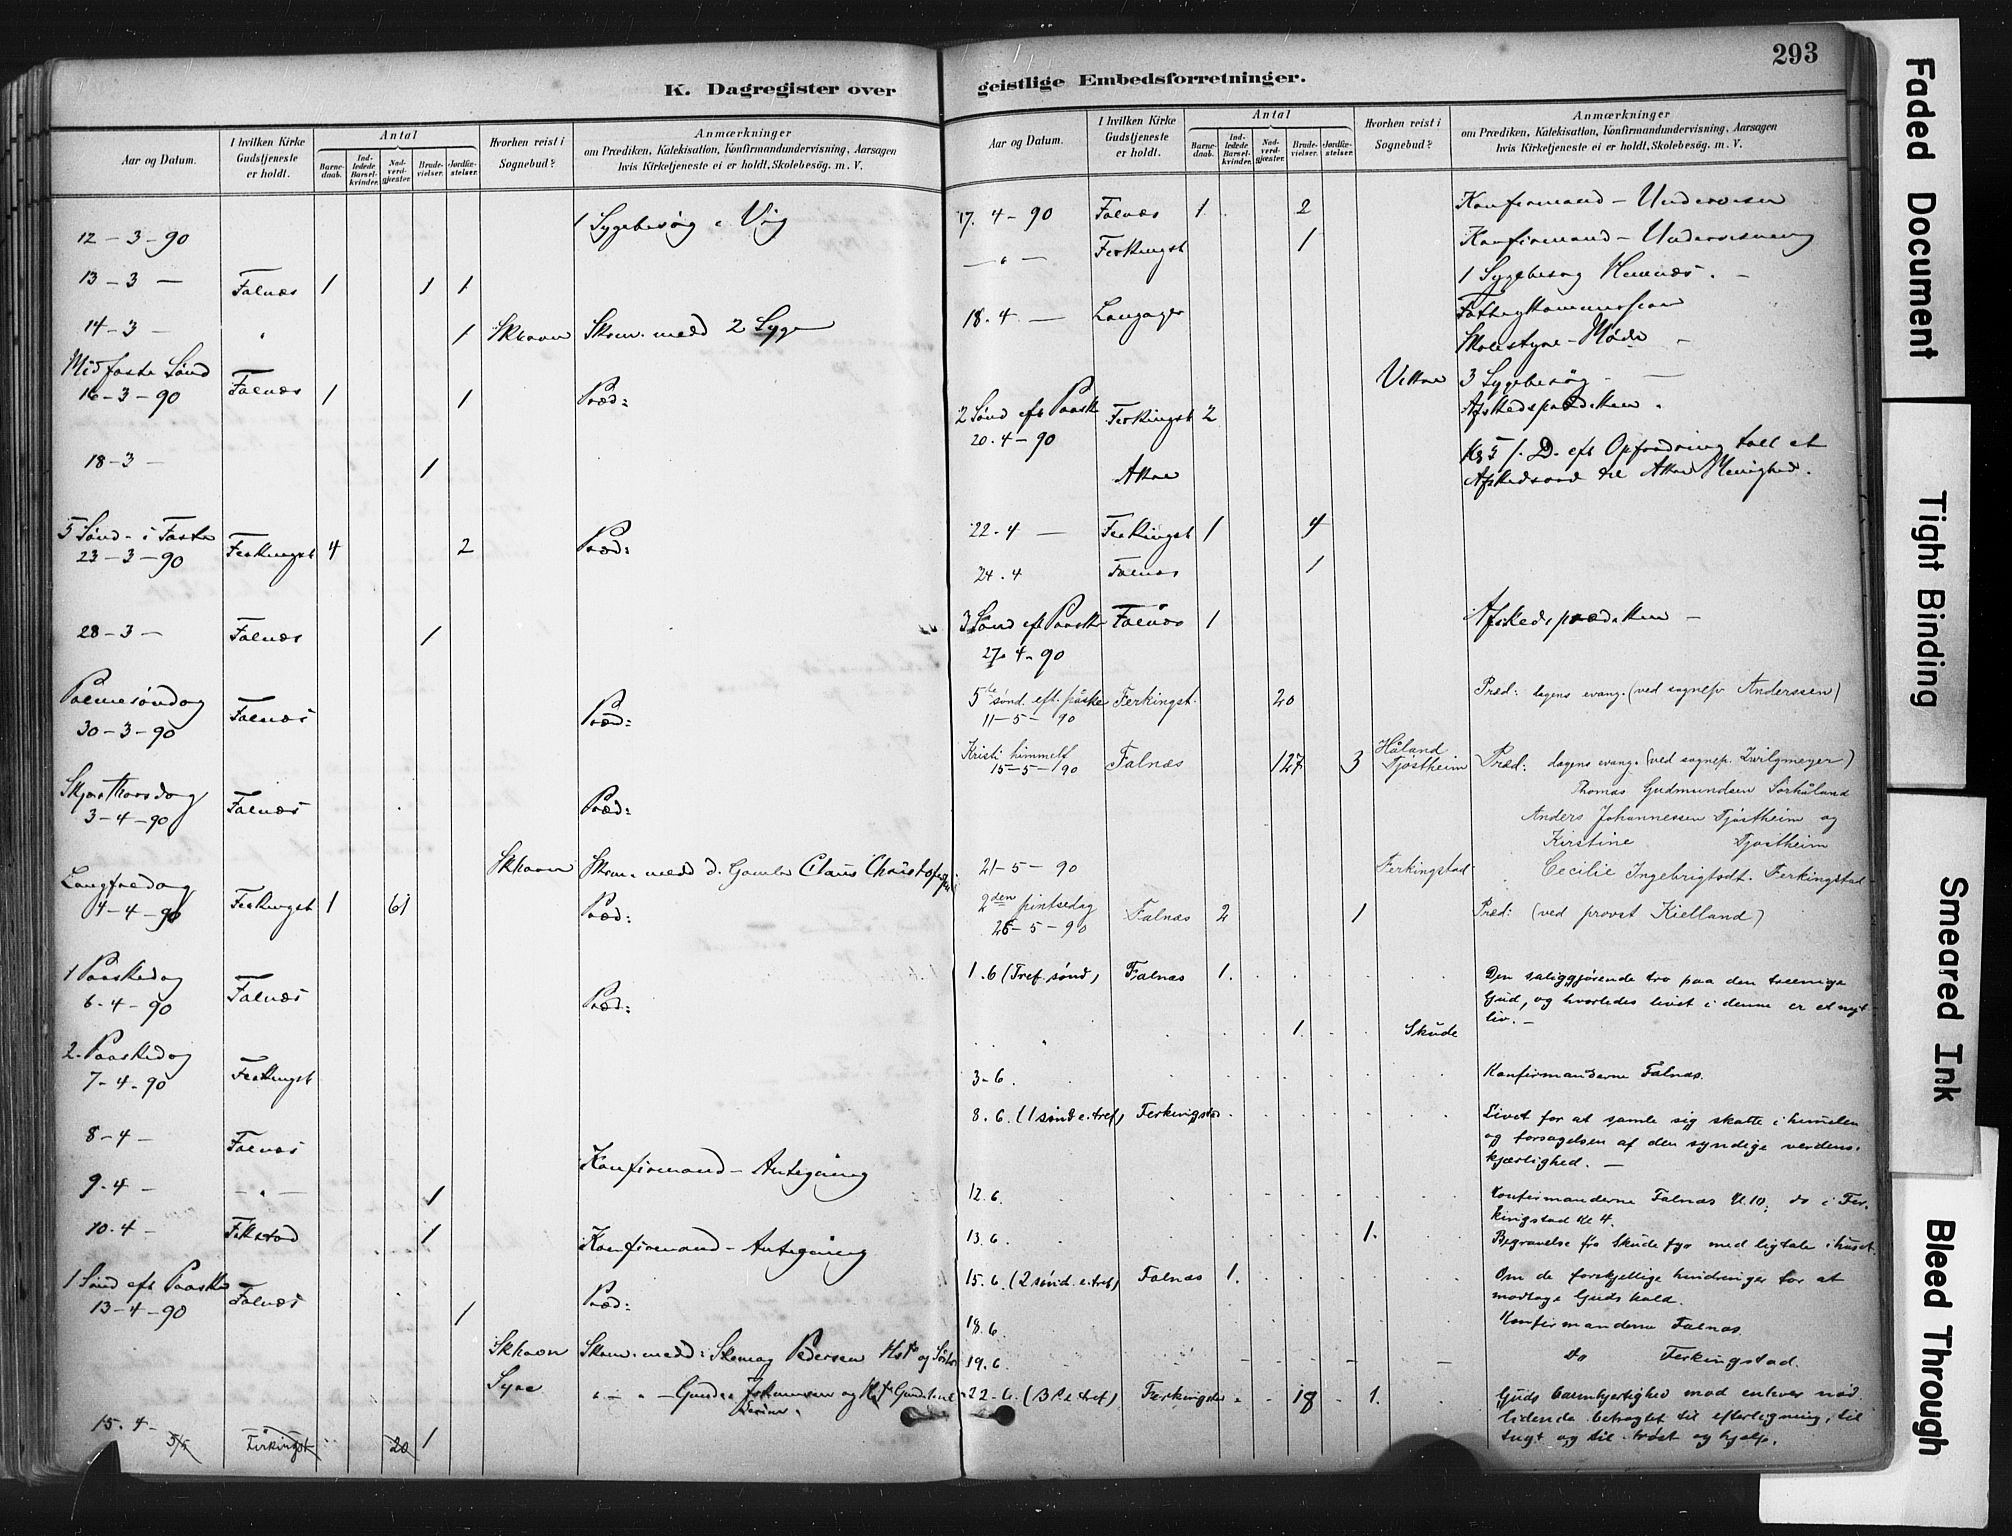 293
K. Dagregister over
Aar og Datum.
I hvilken Kirke Gudstjeneste er holdt.
Antal
Barnedaab.
Indledede Barselkvinder.
Nadverdgjæster.
Brudevielser.
Jordfæstelser.
Hvorhen reist i Sognebud?
Anmærkninger
om Prædiken, Katekisation, Konfirmandundervisning, Aarsagen
hvis Kirketjeneste ei er holdt, Skolebesøg. m. V.
12-3-90 1 Sygebesøg i Vig
13-3 - Falnæs 1 1 1
14-3 - " 1 Skhavn Skrm. medd 2 Syge
Midfaste Sønd
16-3-90 Falnæs 1 1 Præd:
18-3 - 1
5 Sønd - i Faste
23-3-90 Ferkingst 4 2 Præd:
28-3 - Falnæs 1
Palmesøndag
30-3-90 Falnæs Præd:
Skjærthorsdag
3-4-90 Falnæs Præd:
Skhavn Skrm. medd d. Gamle Claus
Langfredag
4-4-90 Ferkingst 1 61 Præd:
1 Paaskedag
6-4-90 Falnæs Præd:
2. Paaskedag
7-4-90 Ferkingst
8-4 - Falnæs
Konfirmand - Antegning
9.4 - - " - 1
10.4 - 1
Konfirmand - Antegning
1 Sønd eft Paaske
13-4-90 Falnæs 1 Præd:
Skhavn Skrm. medd: Pedersen og
Syre " - " - og
15.4 - 1
5/5 Ferkingst 20
geistlige Embedsforretninger.
Aar og Datum.
I hvilken Kirke Gudstjeneste er holdt.
Antal
Barnedaab.
Indledede Barselkvinder.
Nadverdgjæster.
Brudevielser.
Jordfæstelser.
Hvorhen reist i Sognebud?
Anmærkninger
om Prædiken, Katekisation, Konfirmandundervisning, Aarsagen
hvis Kirketjeneste ei er holdt, Skolebesøg. m. V.
17. 4-90 Falnæs 1. 2 Konfirmand - Undervisn
- " - Ferkingst 1 Konfirmand - Undervisning
1 Sygebesøg -
18.4 - Fattigkommission
Skolestyre-Møde -
3 Sygebesøg -
2 Sønd eft Paaske Ferkingst 2 Afskedsprædiken.
20.4-90
Kl 5 eft Opfordring talt et
Afskedsord til Menighed.
22-4 - Ferkingst 1 4
24.4 Falnæs 1
3 Sønd eft Paaske Falnæs 1 Afskedsprædiken -
27.4-90
5te sønd. eft. påske Ferkingst. 20 Præd: dagens evang. (ved sognepr Anderssen)
11-5-90
Kristi himmelf Håland
15-5-190 Falnæs 127 3 Tjøstheim Præd: dagens evang. (ved sognepr. Zwilgmeyer)
Thomas Gudmundsen Sørhåland
Anders Johannessen Tjøstheim og
Kirstine Tjøstheim
21-5-90 Ferkingstad Cecilie Ingebrigtsdt. Ferkingstad
2den pintsedag
26-5-90 Falnæs 2 1 Præd: (ved provst Kielland)
1.6 (Tref. sønd) Falnæs 1. Den saliggjørende tro paa den treenige
Gud, og hvorledes livet i denne er et nyt
liv. -
" 1. Skude
3-6. Konfirmanderne Falnæs.
8.6. (1 sønd e. tref) Ferkingstad Livet for at samle sig skatte i himelen
og forsagelsen af den syndige verdens.
kjærlighed. -
12.6. Konfirmanderne Falnæs kl. 10; do i Fer.
kingstad kl 4.
13.6. 1. Begravelse fra Skude fyr med ligtale i huset.
15.6. (2 sønd. e. tref) Falnæs 1. Om de forskjellige hindringer for at
modtage Guds kald.
18.6. Konfirmanderne Falnæs.
19.6. do Ferkingstad.
22-6. (3 S. e. tref) Ferkingstad 18 1. Guds barmhjertighed mod enhver nød
lidende betragtet til efterligning, til
tugt og til trøst og hjælp.
Faded Document
Tight Binding
Smeared Ink
Bleed Through